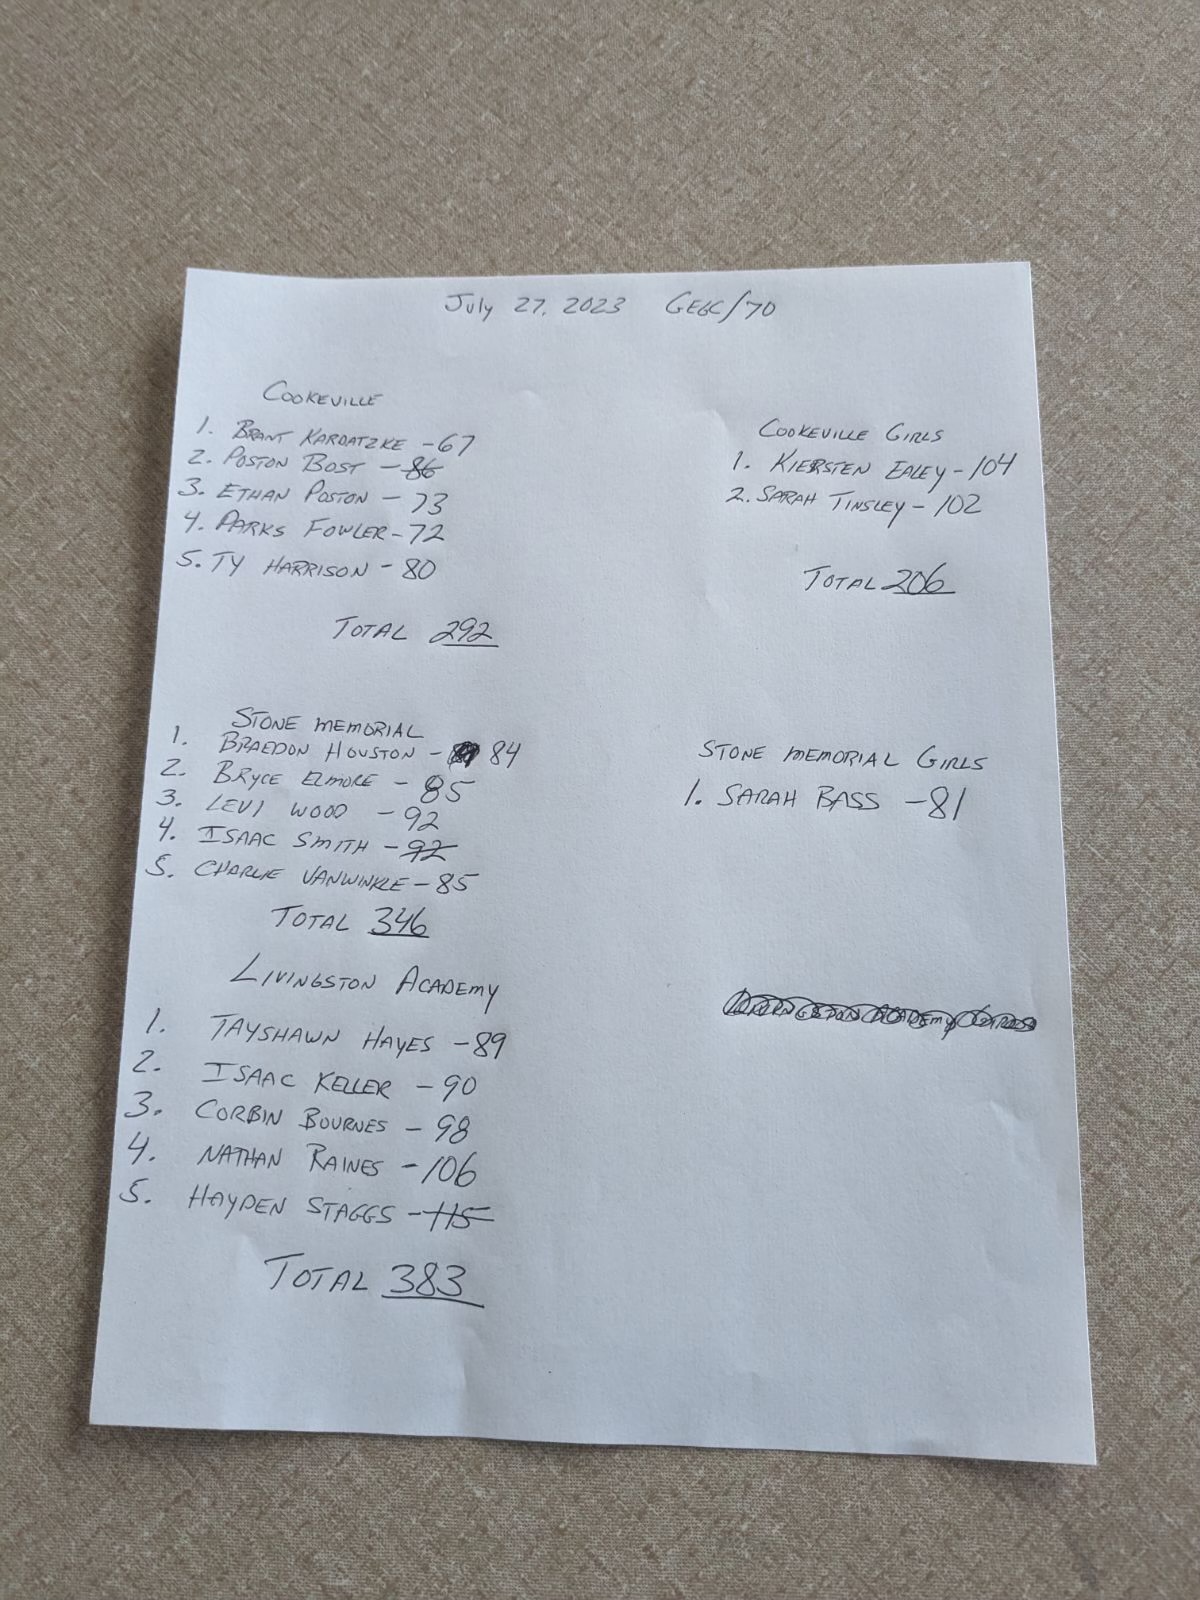 July 27, 2023 GEGC/70
COOKEVILLE
1. BRANT KARDATZKE - 67
2. POSTON BOST - 86
3. ETHAN POSTON - 73
4. PARKS FOWLER - 72
5. TY HARRISON - 80
TOTAL 292
COOKEVILLE GIRLS
1. KIERSTEN EALEY - 104
2. SARAH TINSLEY - 102
TOTAL 206
STONE MEMORIAL
1. BRAEDON HOUSTON - 84
2. BRYCE ELMORE - 85
3. LEVI WOOD - 92
4. ISAAC SMITH - 92
5. CHARLIE VANWINKLE - 85
TOTAL 346
STONE MEMORIAL GIRLS
1. SARAH BASS - 81
LIVINGSTON ACADEMY
1. TAYSHAWN HAYES - 89
2. ISAAC KELLER - 90
3. CORBIN BOURNES - 98
4. NATHAN RAINES - 106
5. HAYDEN STAGGS - 115
TOTAL 383